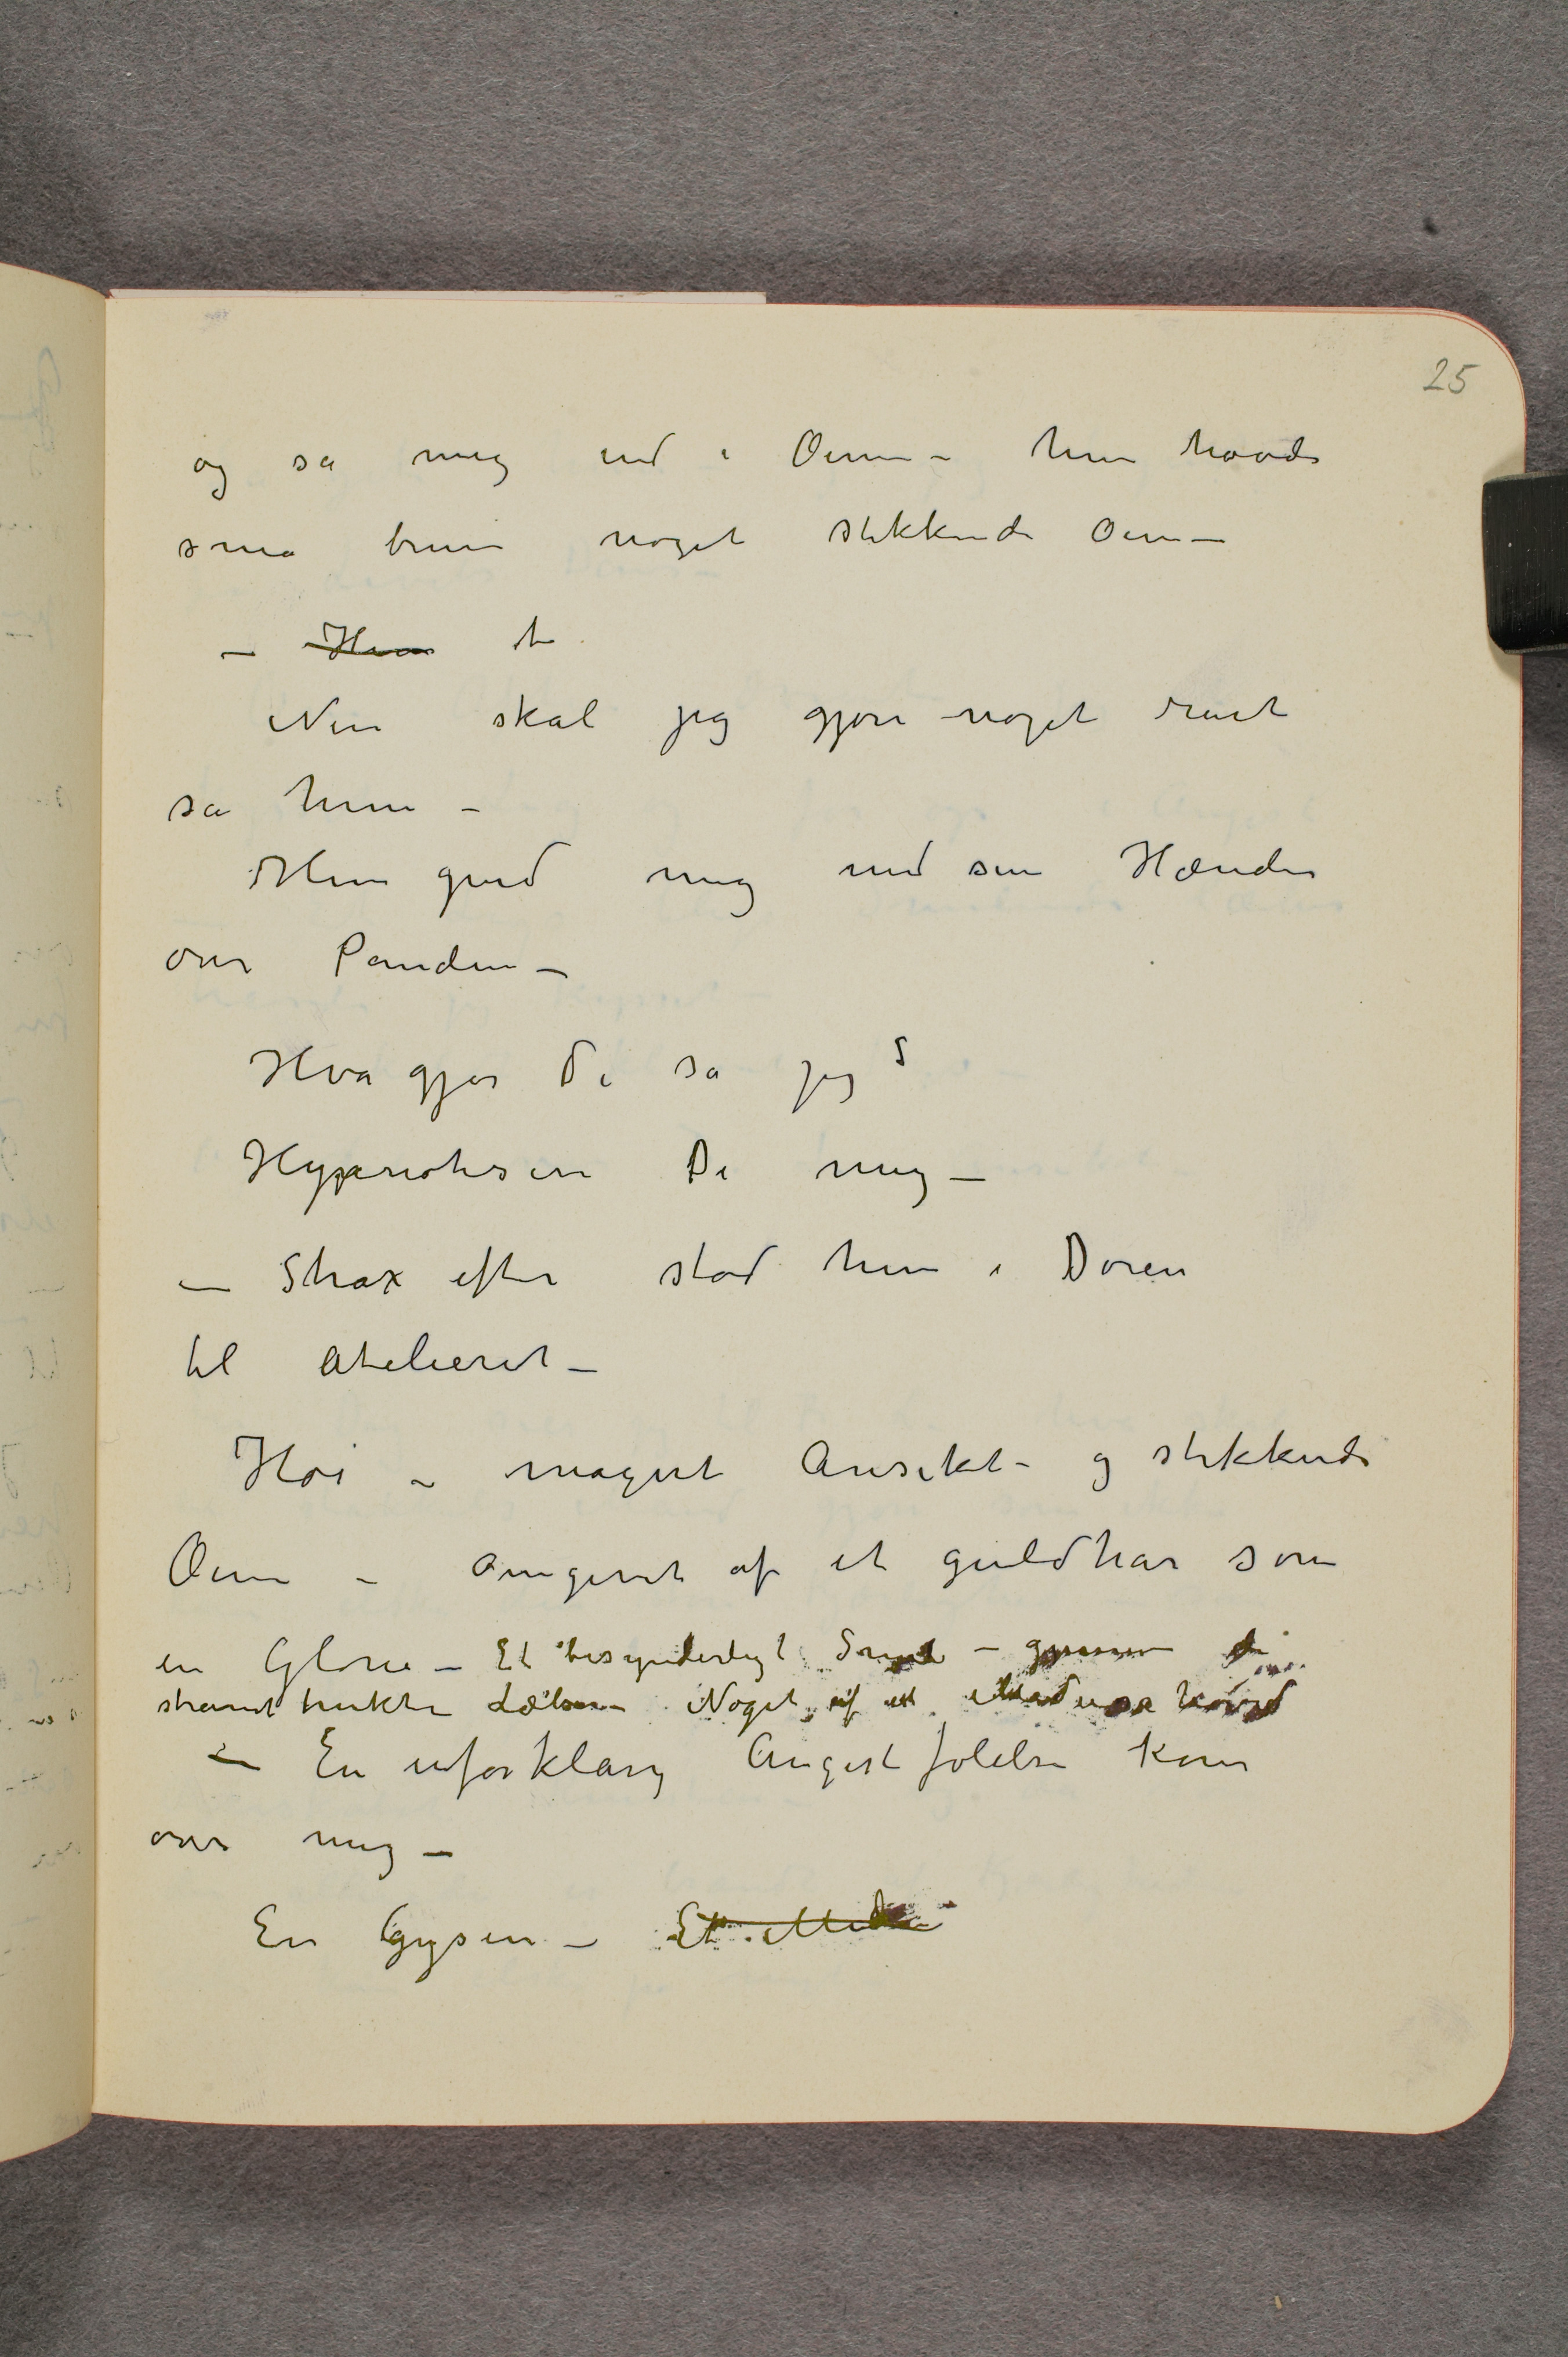 25
og så mig ind i Øinene – hun havde
små brune noget stikkende Øine –
– Hun t
Nu skal jeg gjøre noget rart
sa hun –
Hun gned mig med sine Hænder
over Panden –
Hva gjør De sa jeg?
Hypnotiserer De mig –
– Strax efter stod hun i Døren
til atelieret –
Høi – magert Ansikt – og stikkende
Øine – omgivet af et guldhår som
en Glorie – Et besynderligt Smil – gjennem de
stramt trukkne Læber – Noget af et Madonnahoved
– En uforklarlig Angestfølelse kom
over mig –
En Gysen – Et